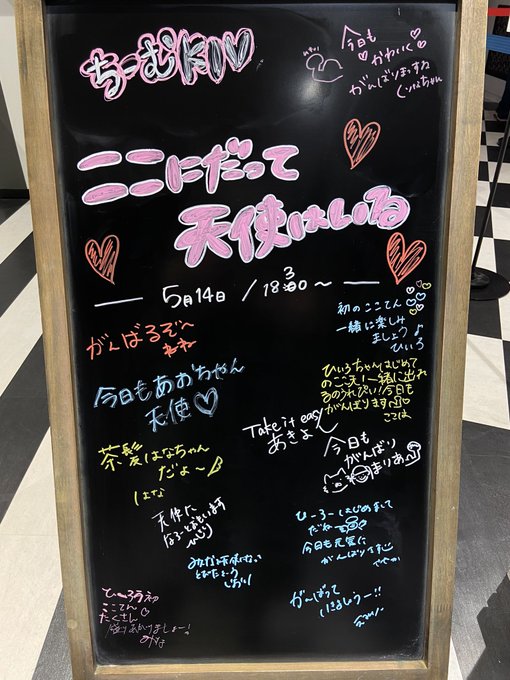 ちーむKⅣ
今日も
かわいく
がんばりまっすね
りなちゃん
ここにだって
天使はいる
5月14日 / 18:30〜
がんばるぞ〜
初のここてん
一緒に楽しみ
ましょう♪
ひいろ
今日もあおちゃん
天使♡
ひいろちゃんはじめて
のここ天!一緒に出れ
るのうれぴい!今日も
がんばります
ここは
Take it easy
あきよし
茶髪はなちゃん
だよ〜
はな
今日も
がんばり
まりあ〜
天使に
なろうとおもいます
ひーろーはじめまして
だね
今日も元気に
がんばります
がーばって
いきましょう〜!!
ひーろう初
ここてん
たくさん♡
盛りあがりましょー!